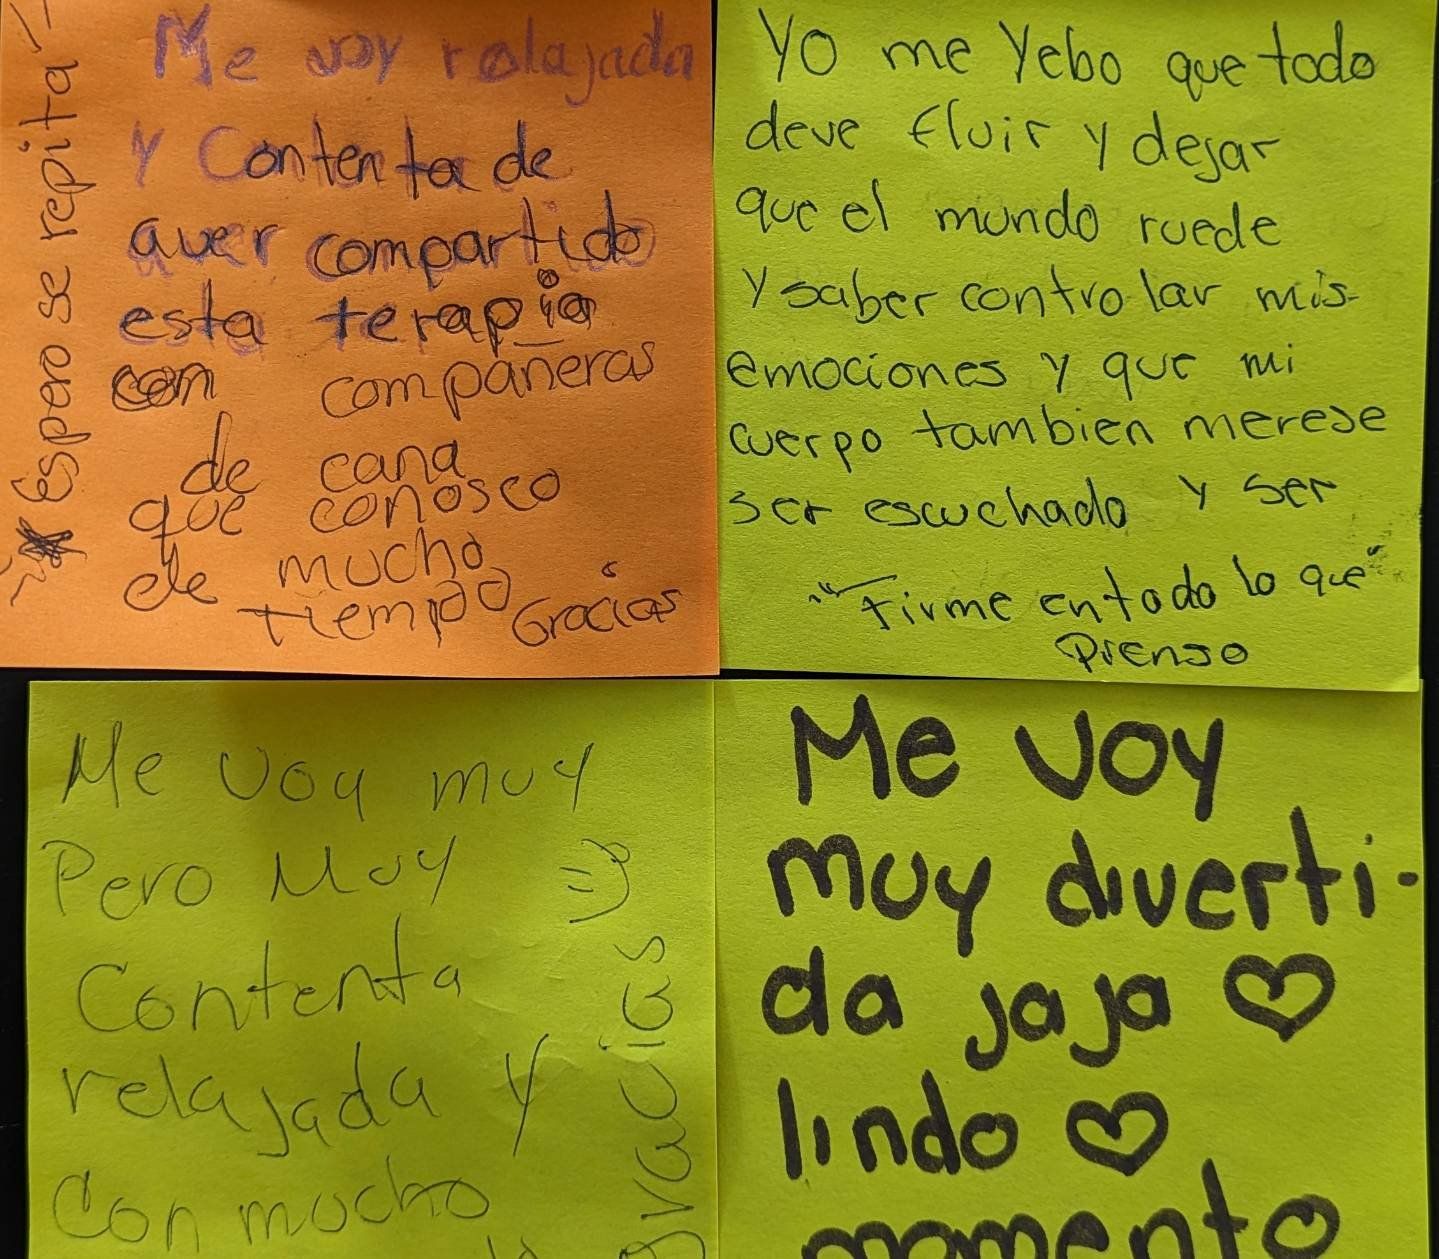 Me voy relajada
y contenta de
aver compartido
esta terapia
con compañeras
de cana
que conosco
de mucho
tiempo Gracias
Espero se repita
Yo me yebo que todo
deve fluir y dejar
que el mundo ruede
y saber controlar mis
emociones y que mi
cuerpo tambien merese
ser escuchado y ser
"Firme en todo lo que"
Pienso
Me voy muy
Pero Muy =)
Contenta
relajada y
Con mucho
gracias
Me voy
muy diverti-
da jaja ♡
lindo ♡
momento